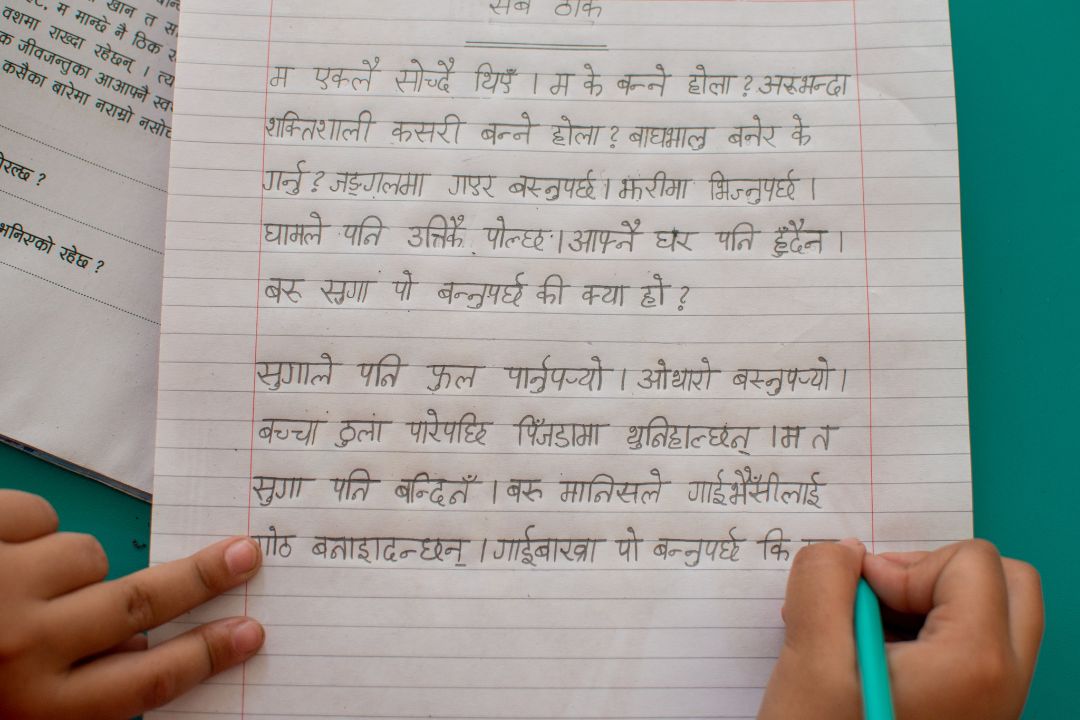 खान त स
८. म मान्छे नै ठिक र
वशमा राख्दा रहेछन् । त्य
क जीवजन्तुका आआफ्नै स्व
कसैका बारेमा नराम्रो नसोच
ेरल्छ ?
भनिएको रहेछ ?
सब ठीक
म एक्लै सोच्दै थिएँ । म के बन्ने होला ? अरूभन्दा
शक्तिशाली कसरी बन्ने होला ? बाघभालु बनेर के
गर्नु ? जङ्गलमा गएर बस्नुपर्छ । झरीमा भिज्नुपर्छ ।
घामले पनि उत्तिकै पोल्छ । आफ्नै घर पनि हुँदैन ।
बरू सुगा पो बन्नुपर्छ की क्या हो ?
सुगाले पनि फुल पार्नुपर्‍यो । ओथारो बस्नुपर्‍यो ।
बच्चा ठुला पारेपछि पिँजडामा थुनिहाल्छन् । म त
सुगा पनि बन्दिनँ । बरू मानिसले गाईभैँसीलाई
गोठ बनाइदिन्छन् । गाईबाख्रा पो बन्नुपर्छ कि